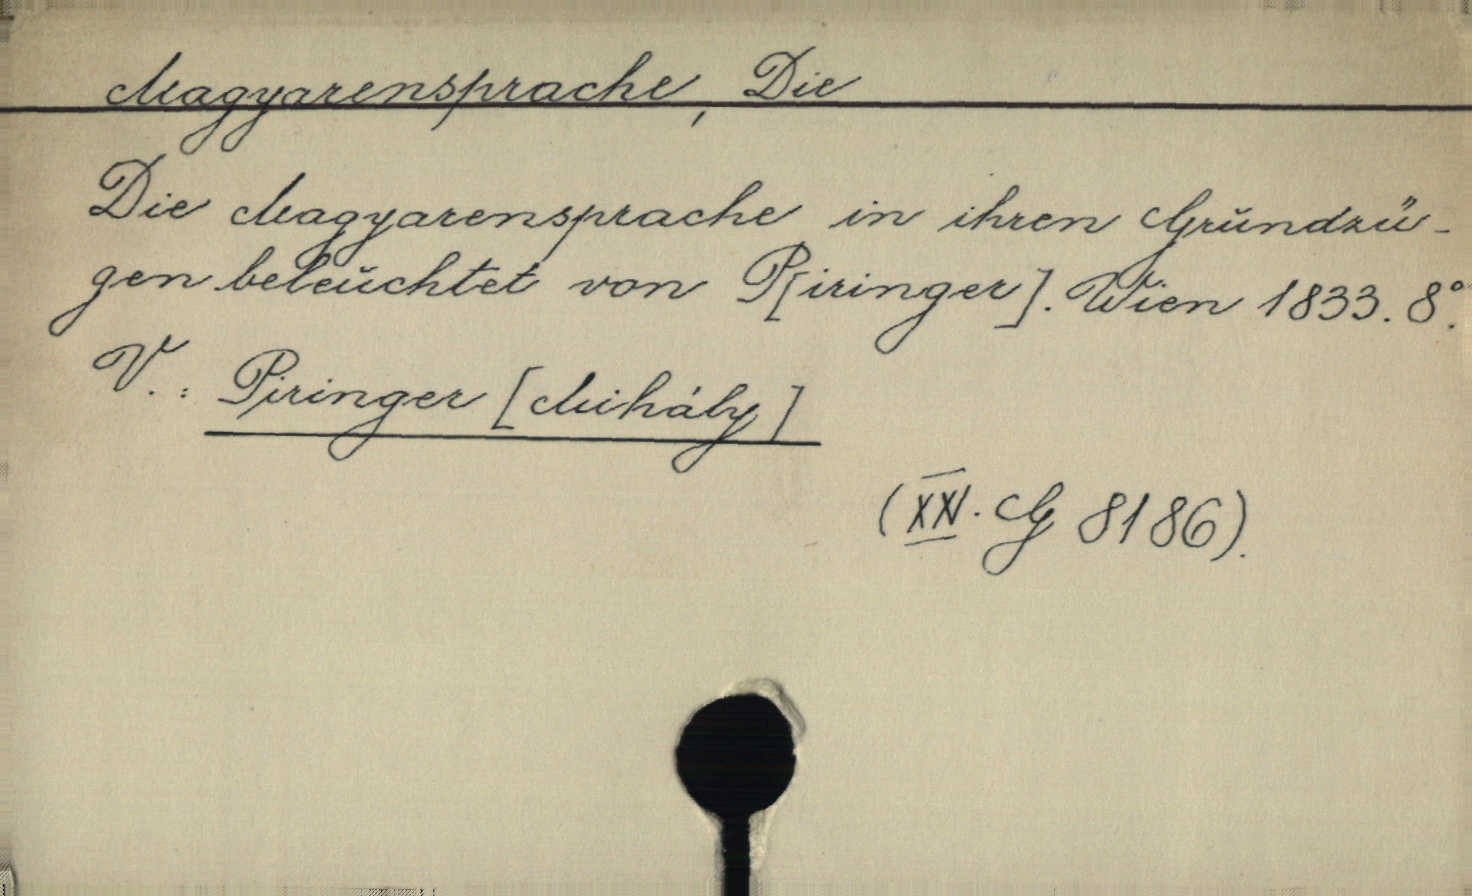 Magyarensprache, Die
Die Magyarensprache in ihren Grŭndzü-
gen beleŭchtet von P[iringer]. Wien 1833. 8°.
V.: Piringer [Mihály]
(XXV. G 8186).